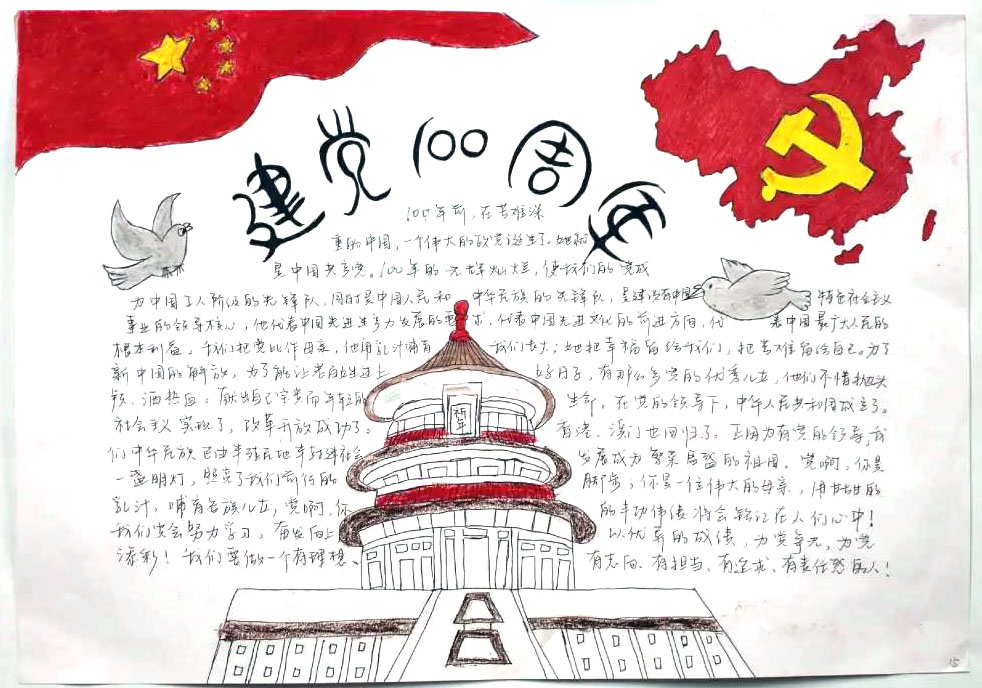 建党100周年
100年前，在苦难深
重的中国，一个伟大的政党诞生了。她就
是中国共产党。100年的光辉灿烂，使我们的党成
为中国工人阶级的先锋队，同时是中国人民和 中华民族的先锋队，是建设有中国 特色社会主义
事业的领导核心，他代表中国先进生产力发展的要求，代表中国先进文化的前进方向，代 表中国最广大人民的
根本利益。我们把党比作母亲，他用乳汁哺育 我们长大；她把幸福留给我们，把苦难留给自己。为了
新中国的解放，为了能让老百姓过上 好日子，有那么多党的优秀儿女，他们不惜抛头
颅、洒热血。献出自己宝贵而年轻的 生命。在党的领导下，中华人民共和国成立了。
社会主义实现了，改革开放成功了。 香港、澳门也回归了。正因为有党的领导，我
们中华民族 社会 发展成为繁荣昌盛的祖国。党啊，你是
一盏明灯，照亮了我们前行的 脚步，你是一位伟大的母亲，用甘甜的
乳汁，哺育各族儿女，党啊，你 的丰功伟绩将会铭记在人们心中！
我们定会努力学习，奋发向上 以优异的成绩，为党争光，为党
添彩！我们要做一个有理想、 有志向、有担当、有追求、有责任感的人！
祈年
15